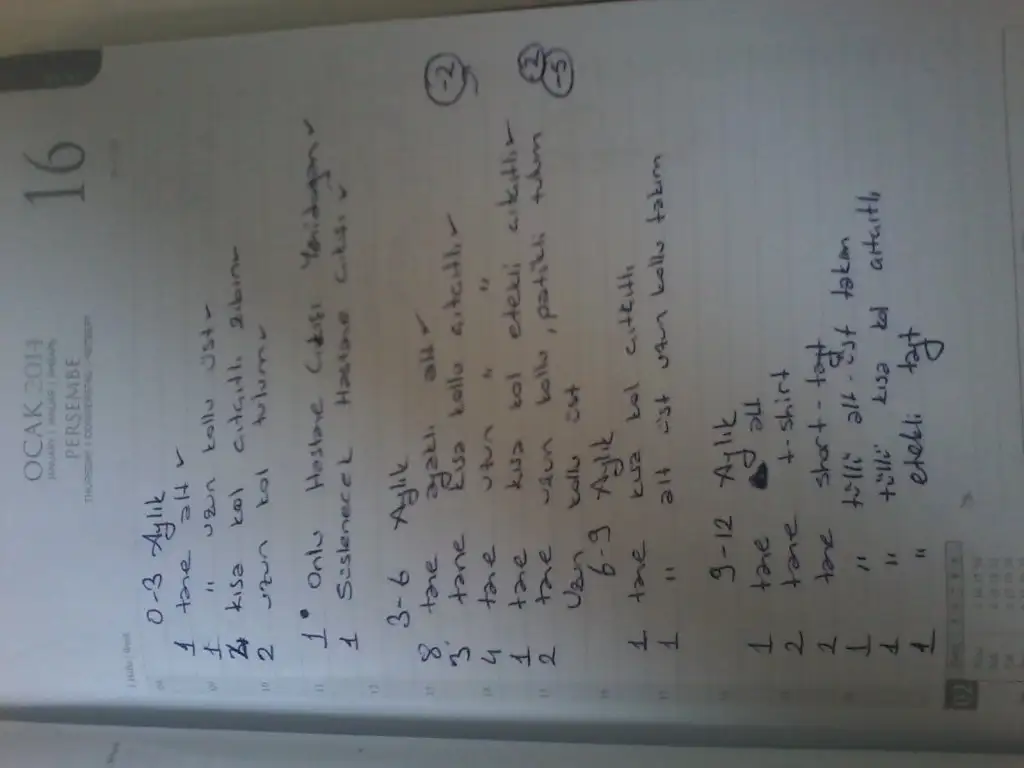 OCAK 2014
16
PERŞEMBE
0-3 Aylık
1 tane alt ✓
1 " uzun kollu üst ✓
2 kısa kol çıtçıtlı zıbın ✓
2 uzun kol tulum ✓
1 Onlu Hastane Çıkışı Yenidoğan ✓
1 Süslenecek Hastane çıkışı ✓
3-6 Aylık
8 tane ayaklı alt ✓ -2
3 tane kısa kollu çıtçıtlı ✓
4 tane uzun " "
1 tane kısa kol etekli çıtçıtlı ✓
2 tane uzun kollu, patikli tulum -2 -5
uzun kollu üst
6-9 Aylık
1 tane kısa kol çıtçıtlı
1 " alt üst uzun kollu takım
9-12 Aylık
1 tane alt
2 tane t-shirt
2 tane short-tayt
1 " tüllü alt-üst takım
1 " tüllü kısa kol çıtçıtlı
1 " etekli tayt
02